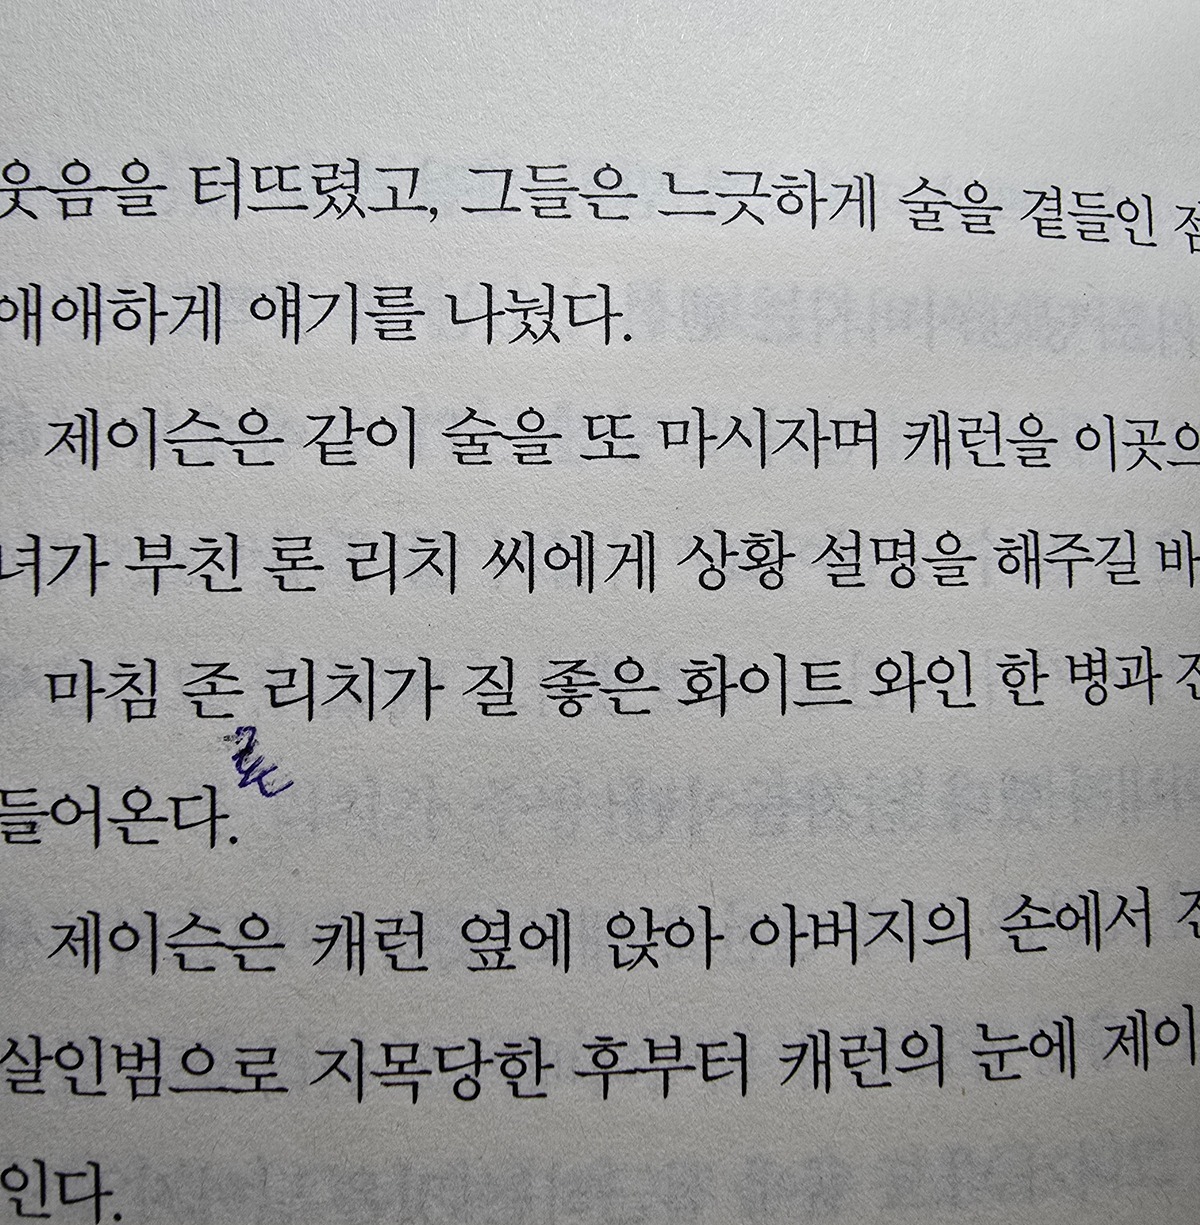 웃음을 터뜨렸고, 그들은 느긋하게 술을 곁들인
애애하게 얘기를 나눴다.
제이슨은 같이 술을 또 마시자며 캐런을 이곳으
녀가 부친 론 리치 씨에게 상황 설명을 해주길 바
마침 존 리치가 질 좋은 화이트 와인 한 병과
론
들어온다.
제이슨은 캐런 옆에 앉아 아버지의 손에서
살인범으로 지목당한 후부터 캐런의 눈에 제이
인다.